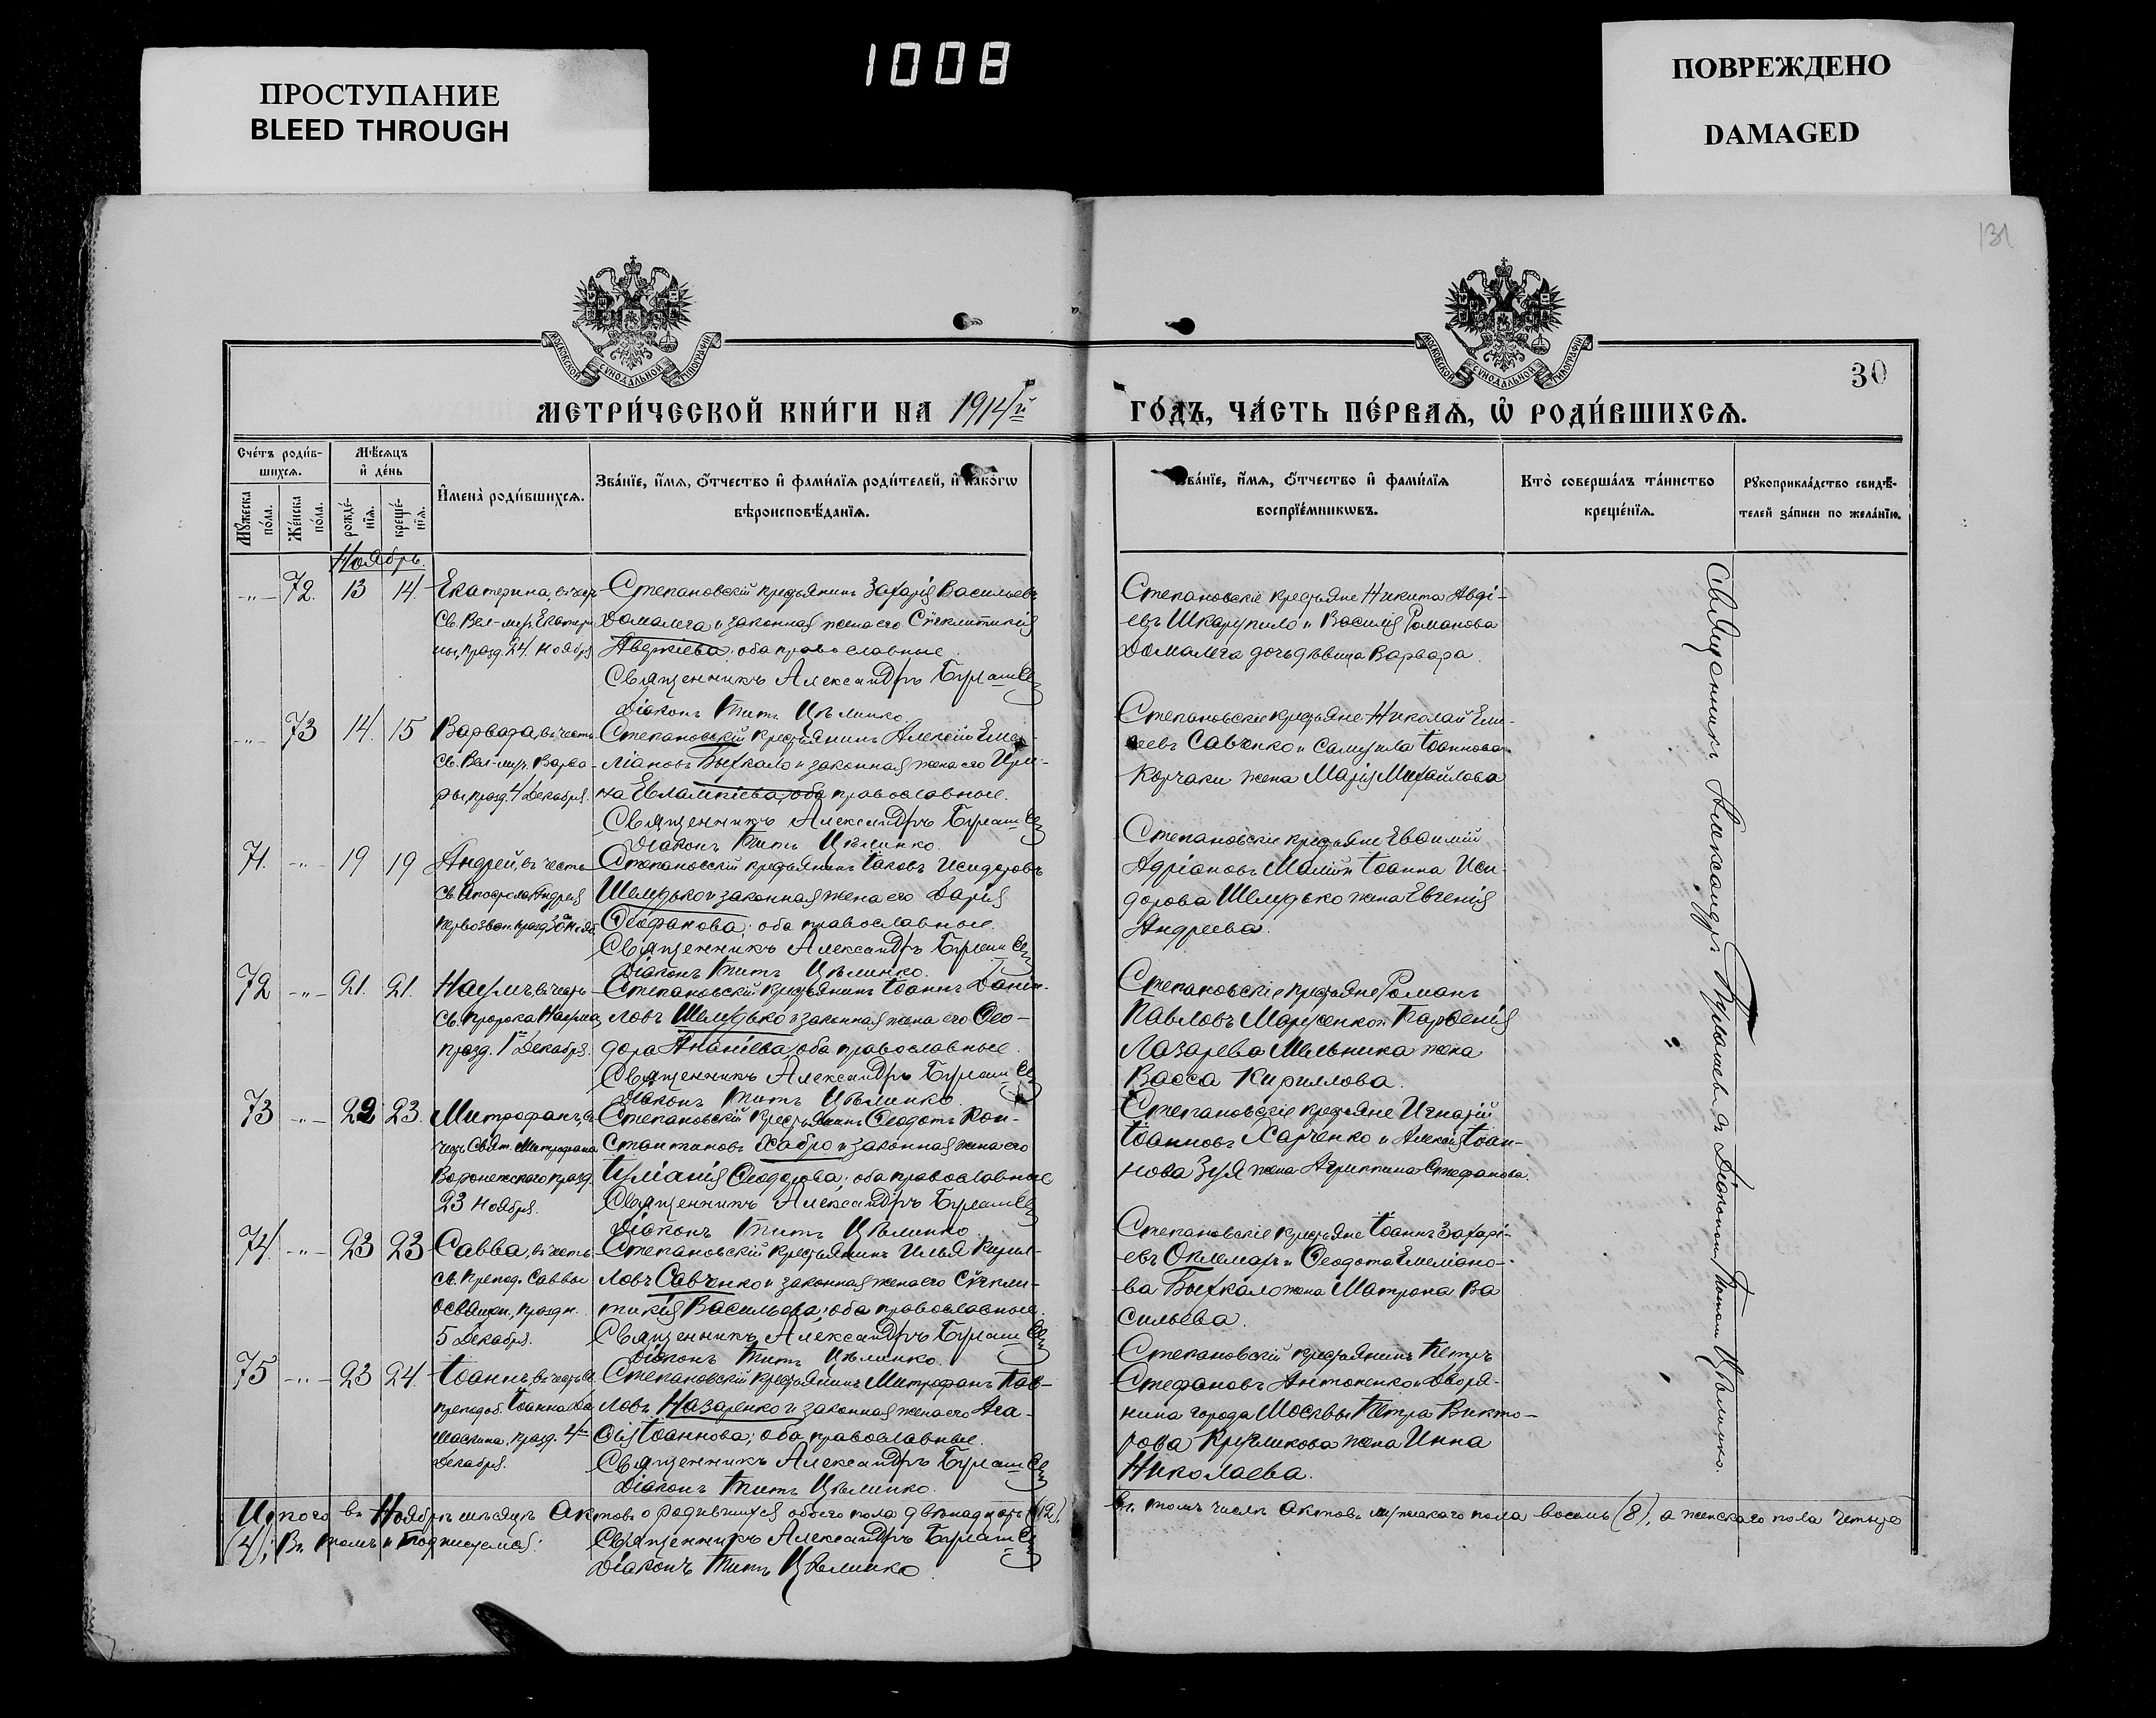 ПРОСТУПАНИЕ
BLEED THROUGH
1008
ПОВРЕЖДЕНО
DAMAGED
131
МОСКОВСКОЙ СѴНОДАЛЬНОЙ ТИПОГРАФІИ
МОСКОВСКОЙ СѴНОДАЛЬНОЙ ТИПОГРАФІИ
30
МЕТРИ́ЧЕСКОЙ КНИ́ГИ НА 1914й
ГО́ДЪ, ЧА́СТЬ ПЕ́РВАѦ, Ѡ҆ РОДИ́ВШИХСѦ.
Сче́тъ роди́в-
шихсѧ.
Мѣ́сѧцъ
и҆ де́нь
Мꙋ́жеска
по́ла.
Же́нска
по́ла.
рожде́-
нїѧ.
креще́-
нїѧ.
И҆мена̀ роди́вшихсѧ.
Зва́нїе, и҆́мѧ, ѻ҆́тчество и҆ фами́лїѧ роди́телей, и҆ како́гѡ
вѣроисповѣ́данїѧ.
Зва́нїе, и҆́мѧ, ѻ҆́тчество и҆ фами́лїѧ
воспрїе́мникѡвъ.
Кто̀ соверша́лъ та́инство
креще́нїѧ.
Рꙋкоприкла́дство свидѣ́-
телей за́писи по жела́нїю.
Ноябрь.
-"- 72. 13 14.
Екатерина, въ честь
Св. Вел-муч. Екатери
ны, празд. 24. Ноября
Степановскій крестьянинъ Захарія Васильевъ
Домалега и законная жена его Сѵнклитикія
Авдкіева; оба православные.
Священникъ Александръ Бугаш
Діаконъ Титъ Цѣлинко.
Степановскіе крестьяне Никита Авді-
евъ Шкарупило и Василія Романова
Домалега дочь дѣвица Варвара.
-"- 73 14. 15
Варвара, въ честь
Св. Вел-муч. Варва-
ры, празд. 4 Декабря.
Степановскій крестьянинъ Алексій Еме-
ліановъ Быхкало и законная жена его Ири-
на Евлампіева, оба православные.
Священникъ Александръ
Діаконъ Титъ Цѣлинко.
Степановскіе крестьяне Николай Ели-
сеевъ Савченко и Самуила Іоаннова
Корчаки жена Марія Михайлова
71. -"- 19 19
Андрей, въ честь
Св. Апостола Андрея
Первозван. празд. 30 Нояб.
Степановскій крестьянинъ Іаковъ Исидоровъ
Шелудько и законная жена его Дарія
Ѳеофанова; оба православные.
Священникъ Александръ
Діаконъ Титъ Цѣлинко.
Степановскіе крестьяне Евѳимій
Адріановъ Малій и Іоанна Иси-
дорова Шелудько жена Евгенія
Андреева.
72 -"- 21. 21.
Наумъ, въ честь
Св. Пророка Наума
празд. 1го Декабря.
Степановскій крестьянинъ Іоаннъ Даніи-
ловъ Шелудько и законная жена его Ѳео-
дора Ананіева; оба православные.
Священникъ Александръ
Діаконъ Титъ Цѣлинко.
Степановскіе крестьяне Романъ
Павловъ Марусенко и Парѳенія
Лазарева Мельника жена
Васса Кириллова.
73 -"- 22 23.
Митрофанъ, въ
честь Свят. Митрофана
Воронежскаго празд.
23 Ноября.
Степановскій крестьянинъ Ѳеодотъ Кон-
стантиновъ Хабро и законная жена его
Іуліанія Ѳеодорова; оба православные
Священникъ Александръ
Діаконъ Титъ Цѣлинко.
Степановскіе крестьяне Игнатій
Іоанновъ Харченко и Алексія Іоан-
нова Зуя жена Агриппина Стефанова.
74. -"- 23 23
Савва, въ честь
св. Препод. Саввы
Освящен., праздн.
5 Декабря.
Степановскій крестьянинъ Илья Кирил-
ловъ Савченко и законная жена его Сѵнкли-
тикія Васильева; оба православные.
Священникъ Александръ
Діаконъ Титъ Цѣлинко.
Степановскіе крестьяне Іоаннъ Захарі-
евъ Оклемаръ и Ѳеодота Емеліано-
ва Быхкало жена Матрона Ва
сильева.
75 -"- 23 24.
Іоаннъ, въ честь св.
преподоб. Іоанна Да
маскина, празд. 4го
Декабря.
Степановскій крестьянинъ Митрофанъ Пав-
ловъ Назаренко и законная жена его Ага-
ѳія Іоаннова; оба православные.
Священникъ Александръ
Діаконъ Титъ Цѣлинко.
Степановскій крестьянинъ Петръ
Стефановъ Антоненко и Дворя-
нина города Москвы Петра Викто-
рова Кругликова жена Инна
Николаева.
Священникъ Александръ съ Діакономъ Титомъ Цѣлинко.
Итого въ Ноябрѣ мѣсяцѣ Актовъ о родившихся обоего пола двѣнадцать (12).
Въ томъ числѣ Актовъ мужскаго пола восемь (8), а женскаго пола четыре
(4); Въ томъ и подписуемся: Священникъ Александръ
Діаконъ Титъ Цѣлинко.